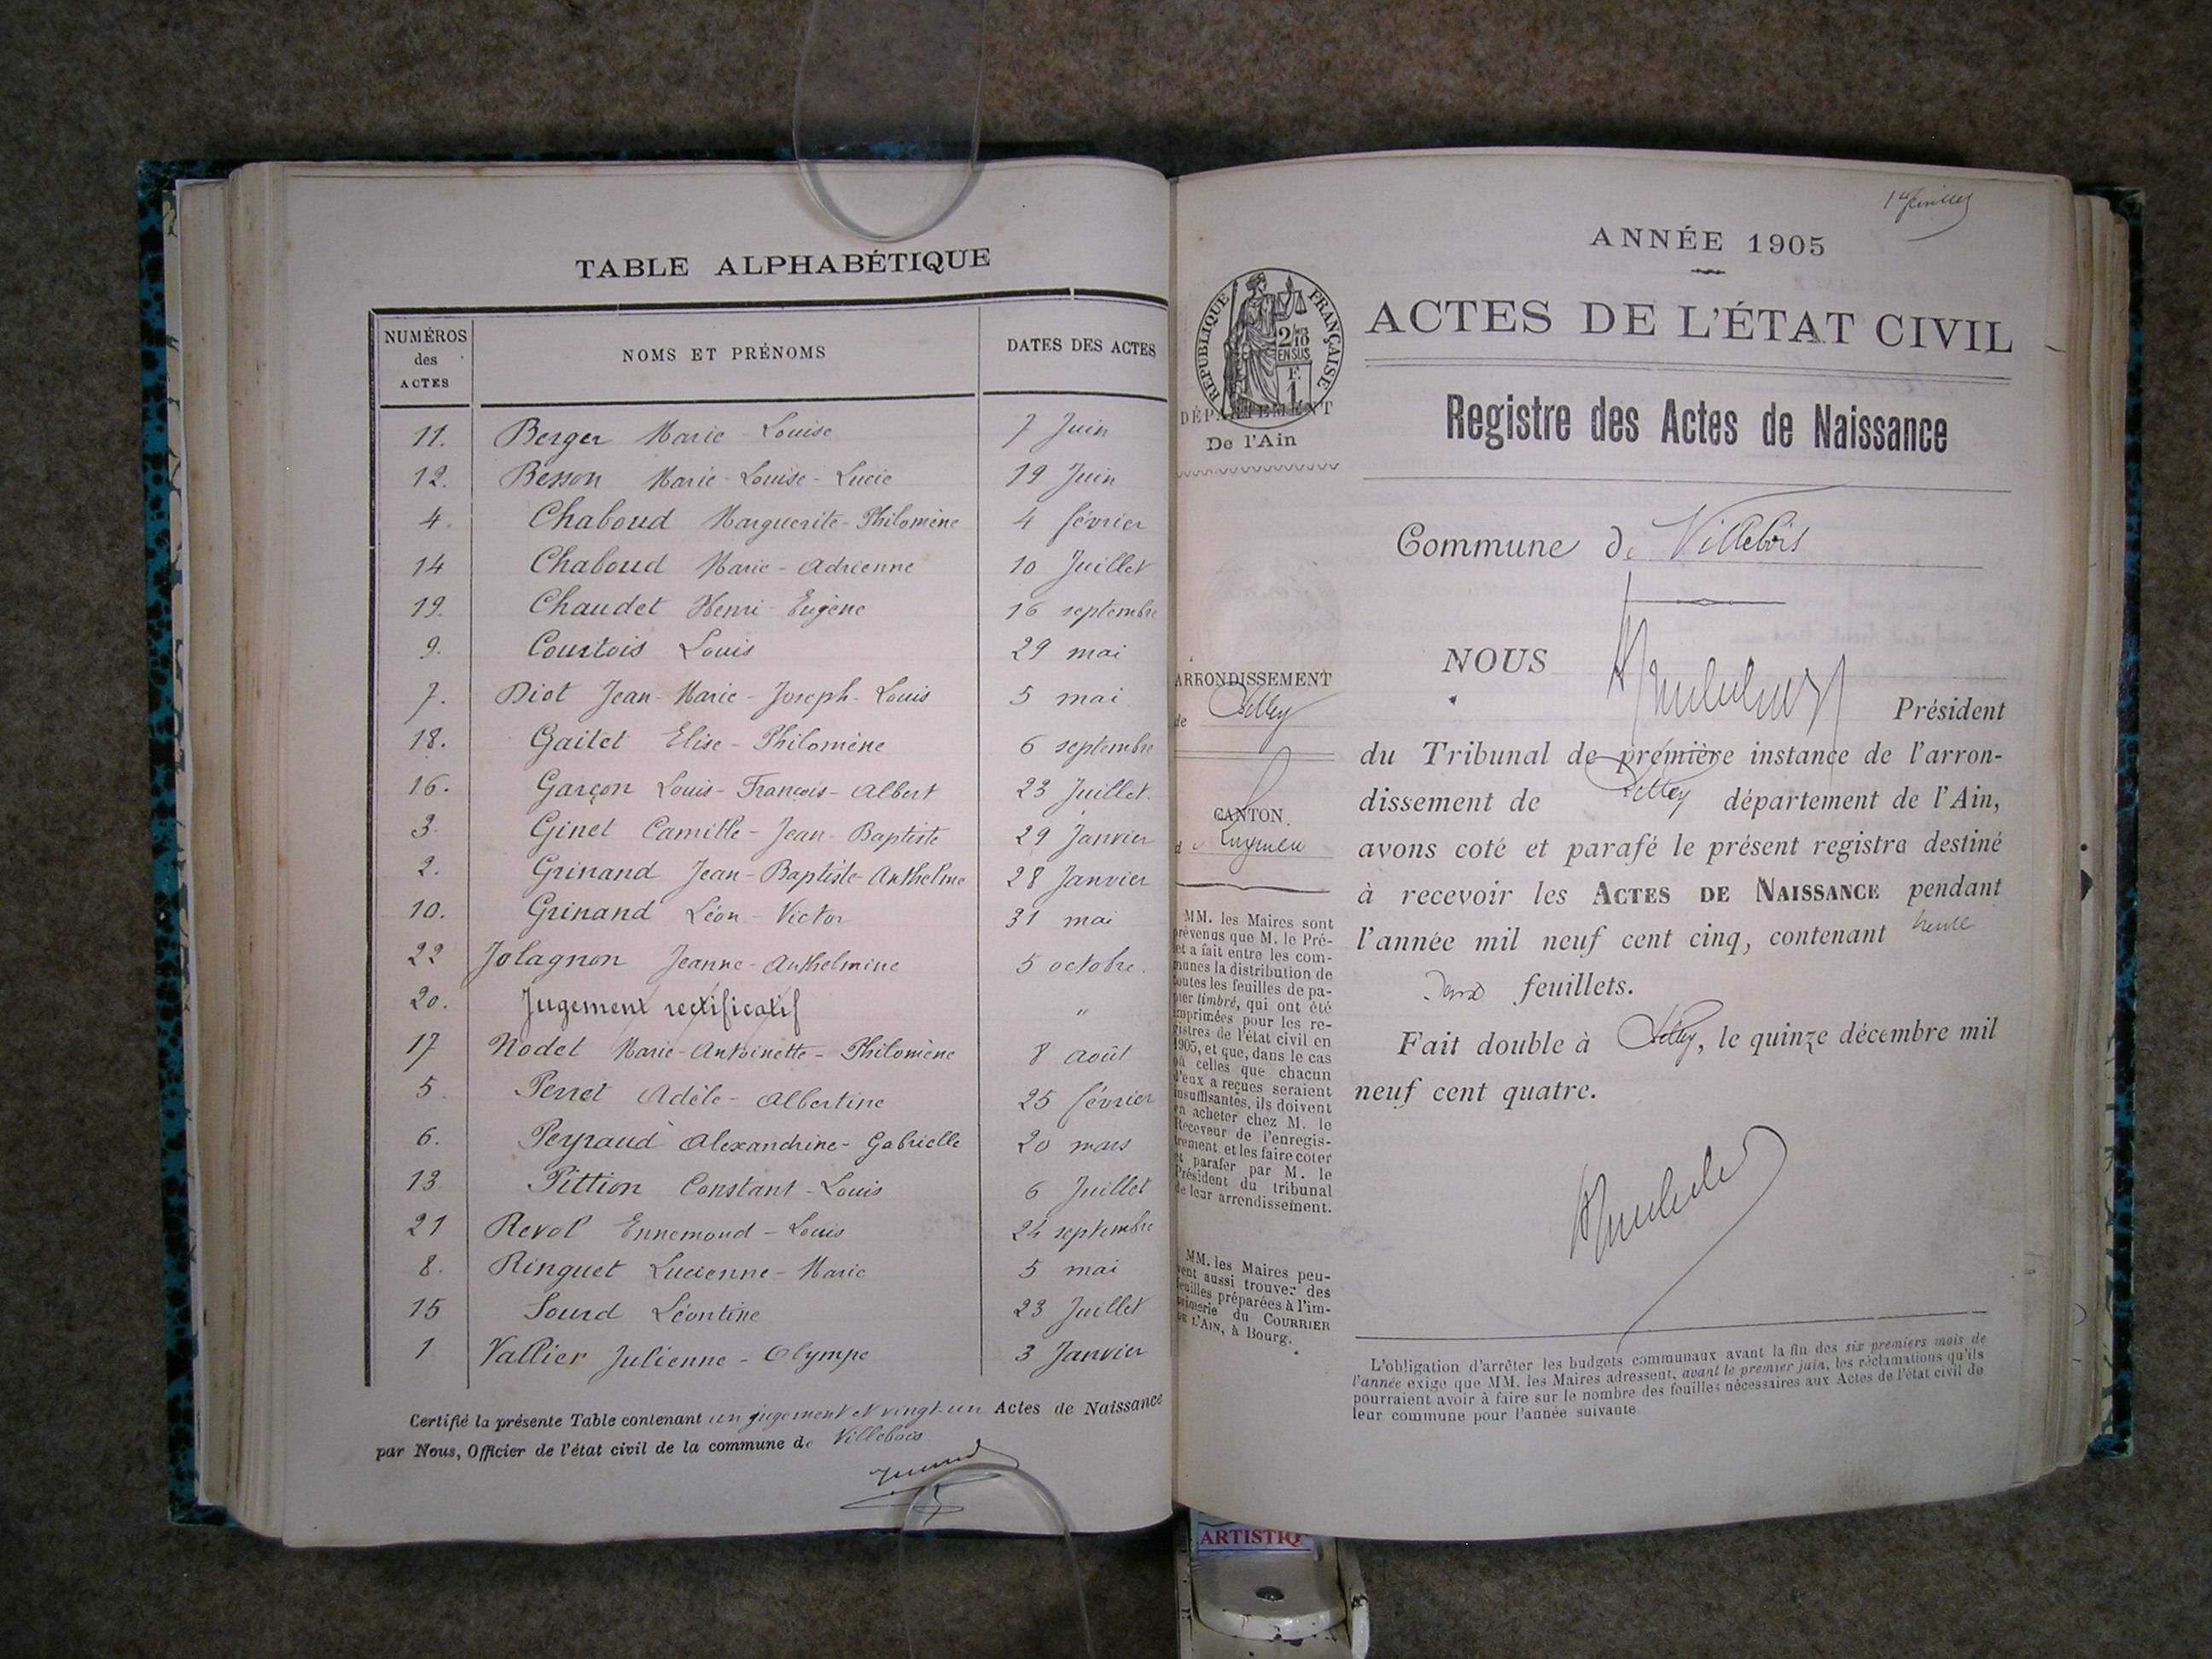 TABLE ALPHABÉTIQUE
NUMÉROS des ACTES NOMS ET PRÉNOMS DATES DES ACTES
11. Berger Marie-Louise 7 Juin
12. Besson Marie-Louise-Lucie 19 Juin
4. Chaboud Marguerite-Philomène 4 février
14 Chaboud Marie-Adrienne 10 Juillet
19. Chaudet Henri-Eugène 16 septembre
9. Courtois Louis 29 mai
7. Diot Jean-Marie-Joseph-Louis 5 mai
18. Gaitet Elise-Philomène 6 septembre
16. Garçon Louis-François-Albert 23 Juillet.
3. Ginet Camille-Jean-Baptiste 29 Janvier
2. Grinand Jean-Baptiste-Anthelme 28 Janvier
10. Grinand Léon-Victor 31 mai
22 Jolagnon Jeanne-Anthelmine 5 octobre.
20. Jugement rectificatif "
17 Nodet Marie-Antoinette-Philomène 8 août
5. Perret Adèle-Albertine 25 février
6. Peyraud Alexandrine-Gabrielle 20 mars
13 Pittion Constant-Louis 6 Juillet
21 Revol Ennemond-Louis 24 septembre
8. Ringuet Lucienne-Marie 5 mai
15 Sourd Léontine 23 Juillet
1 Vallier Julienne-Olympe 3 Janvier
Certifié la présente Table contenant un jugement et vingt-un Actes de Naissance
par Nous, Officier de l'état civil de la commune de Villebois
ANNÉE 1905
ACTES DE L'ÉTAT CIVIL
RÉPUBLIQUE FRANÇAISE
2/10
EN SUS
F.
1
DÉPARTEMENT
De l'Ain
Registre des Actes de Naissance
Commune de Villebois
ARRONDISSEMENT
de Belley
CANTON
MM. les Maires sont
prévenus que M. le Pré-
fet a fait entre les com-
munes la distribution de
toutes les feuilles de pa-
pier timbré, qui ont été
imprimées pour les re-
gistres de l'état civil en
1905, et que, dans le cas
où celles que chacun
d'eux a reçues seraient
insuffisantes, ils doivent
en acheter chez M. le
Receveur de l'enregis-
trement et les faire coter
et parafer par M. le
Président du tribunal
de leur arrondissement.
MM. les Maires peu-
vent aussi trouver des
feuilles préparées à l'im-
primerie du COURRIER
DE L'AIN, à Bourg.
NOUS
Président
du Tribunal de première instance de l'arron-
dissement de Belley département de l'Ain,
avons coté et parafé le présent registre destiné
à recevoir les ACTES DE NAISSANCE pendant
l'année mil neuf cent cinq, contenant trente
deux feuillets.
Fait double à Belley, le quinze décembre mil
neuf cent quatre.
L'obligation d'arrêter les budgets communaux avant la fin des six premiers mois de
l'année exige que MM. les Maires adressent, avant le premier juin, les réclamations qu'ils
pourraient avoir à faire sur le nombre des feuilles nécessaires aux Actes de l'état civil de
leur commune pour l'année suivante
ARTISTIQ